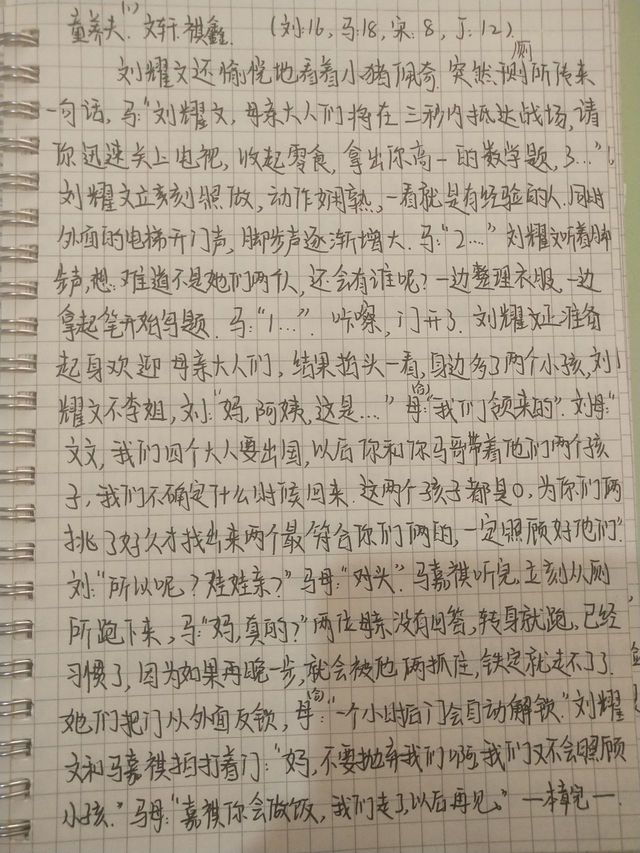 童养夫(1) 文轩.祺鑫. (刘:16, 马:18, 宋:8, 丁:12).
刘耀文还愉悦地看着小猪佩奇. 突然厕所传来
一句话, 马:"刘耀文, 母亲大人们将在三秒内抵达战场, 请
你迅速关上电视, 收起零食, 拿出你高一的数学题, 3…"
刘耀文立刻照做, 动作娴熟, 一看就是有经验的人. 同时
外面的电梯开门声, 脚步声逐渐增大. 马:"2…." 刘耀文听着脚
步声, 想: 难道不是她们两个人, 还会有谁呢? 一边整理衣服, 一边
拿起笔开始写题. 马:"1…". 咔嚓, 门开了. 刘耀文正准备
起身欢迎母亲大人们, 结果抬头一看, 身边多了两个小孩, 刘
耀文不李姐, 刘:"妈, 阿姨, 这是…" 母(合):"我们领来的". 刘母:"
文文, 我们四个大人要出国, 以后你和你马哥带着他们两个孩
子, 我们不确定什么时候回来. 这两个孩子都是O, 为你们两
挑了好久才找出来两个最符合你们俩的, 一定照顾好他们".
刘:"所以呢? 娃娃亲?" 马母:"对头". 马嘉祺听完, 立刻从厕
所跑下来, 马:"妈, 真的?" 两位母亲没有回答, 转身就跑, 已经
习惯了, 因为如果再晚一步, 就会被他俩抓住, 铁定就走不了了.
她们把门从外面反锁, 母(合):"一个小时后门会自动解锁." 刘耀
文和马嘉祺拍打着门:"妈, 不要抛弃我们啊, 我们又不会照顾
小孩." 马母:"嘉祺你会做饭, 我们走了, 以后再见~" —本章完—